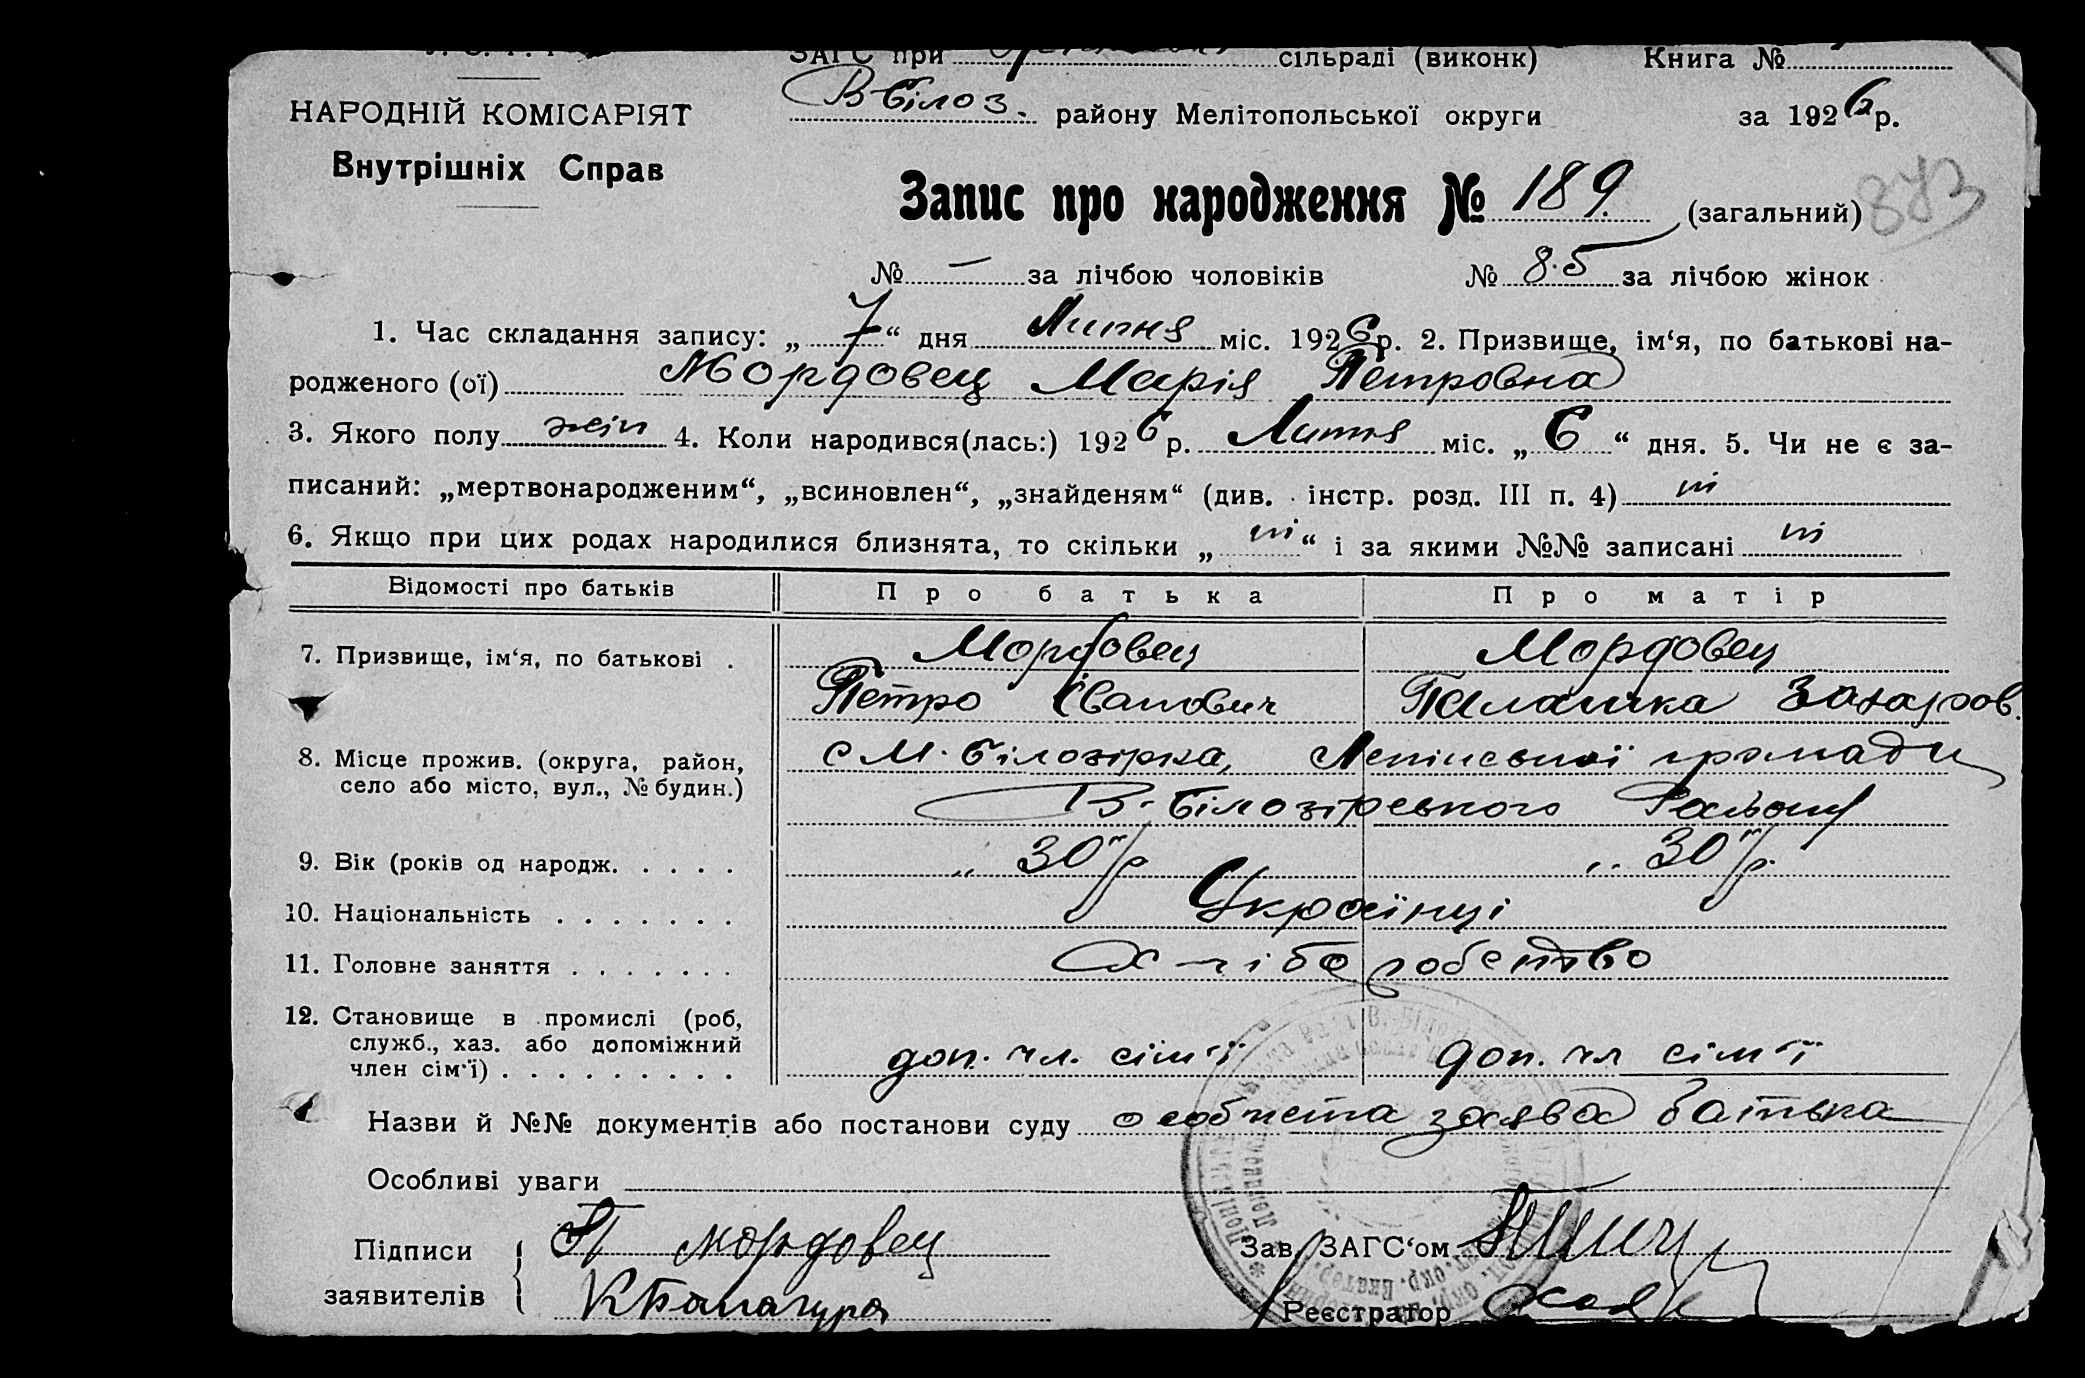 ЗАГС при сільраді (виконк) Книга №
НАРОДНІЙ КОМІСАРІЯТ
Внутрішніх Справ
В Білоз. району Мелітопольської округи за 1926 р.
Запис про народження № 189. (загальний) 873
№ — за лічбою чоловіків № 85 за лічбою жінок
1. Час складання запису: „ 7 “ дня Липня міс. 1926 р. 2. Призвище, ім‘я, по батькові на-
родженого (ої) Мордовец Марія Петровна
3. Якого полу жін 4. Коли народився(лась:) 1926 р. Липня міс. „ 6 “ дня. 5. Чи не є за-
писаний: „мертвонародженим“, „всиновлен“, „знайденям“ (див. інстр. розд. III п. 4) ні
6. Якщо при цих родах народилися близнята, то скільки „ ні “ і за якими №№ записані ні
Відомості про батьків Про батька Про матір
7. Призвище, ім‘я, по батькові . Мордовец Мордовец
Петро Іванович Палашка Захаров.
8. Місце прожив. (округа, район, с М. Білозірка, Ленінської громади
село або місто, вул., № будин.) В. Білозіревского Району
9. Вік (років од народж. . . . . „ 30 р „ 30 р.
10. Національність . . . . . . . Українці
11. Головне заняття . . . . . . . Хліборобство
12. Становище в промислі (роб,
служб., хаз. або допоміжний
член сім‘ї) . . . . . . . . . доп. чл. сім'ї доп. чл сім'ї
Назви й №№ документів або постанови суду особиста заява батька
Особливі уваги
Підписи П мордовец Зав. ЗАГС‘ом
заявителів Реєстратор